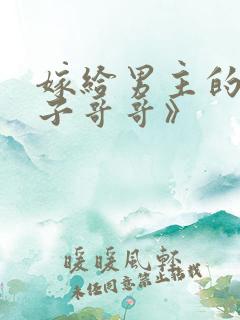 嫁给男主的
子哥哥》
暖暖風軒
未经同意禁止转载